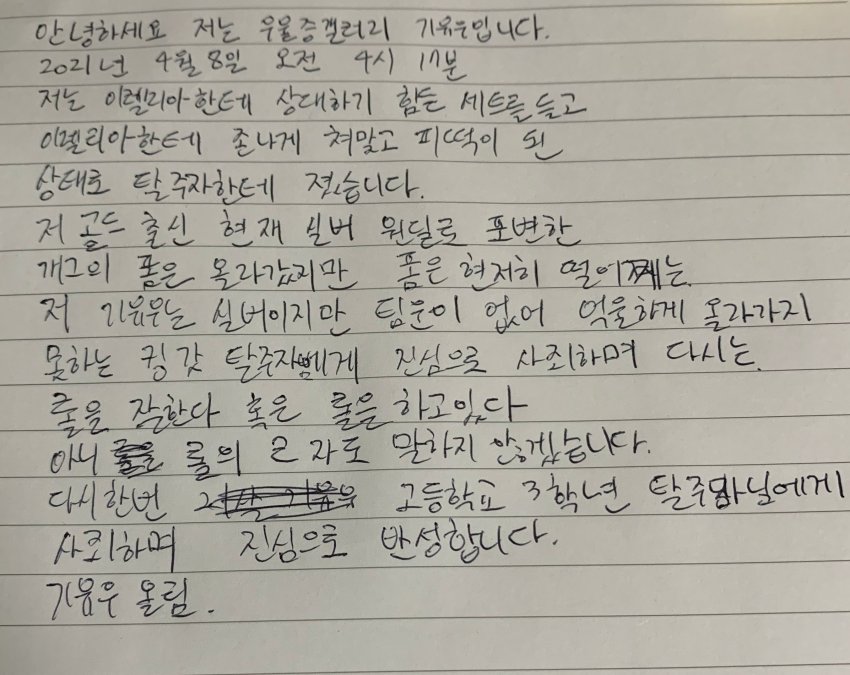 안녕하세요 저는 우울증갤러리 기유우입니다.
2021년 4월 8일 오전 4시 17분
저는 이렐리아한테 상대하기 힘든 세트를 들고
이렐리아한테 존나게 쳐맞고 피떡이 된
상태로 탈주자한테 졌습니다.
저 골드 출신 현재 실버 원딜로 포변한
개그의 폼은 올라갔지만 폼은 현저히 떨어지는
저 기유우는 실버이지만 팀운이 없어 억울하게 올라가지
못하는 킹갓 탈주자쎈에게 진심으로 사죄하며 다시는
롤을 잘한다 혹은 롤을 하고있다
아니 롤의 ㄹ 자도 말하지 않겠습니다.
다시한번 고등학교 3학년 탈주자님에게
사죄하며 진심으로 반성합니다.
기유우 올림.